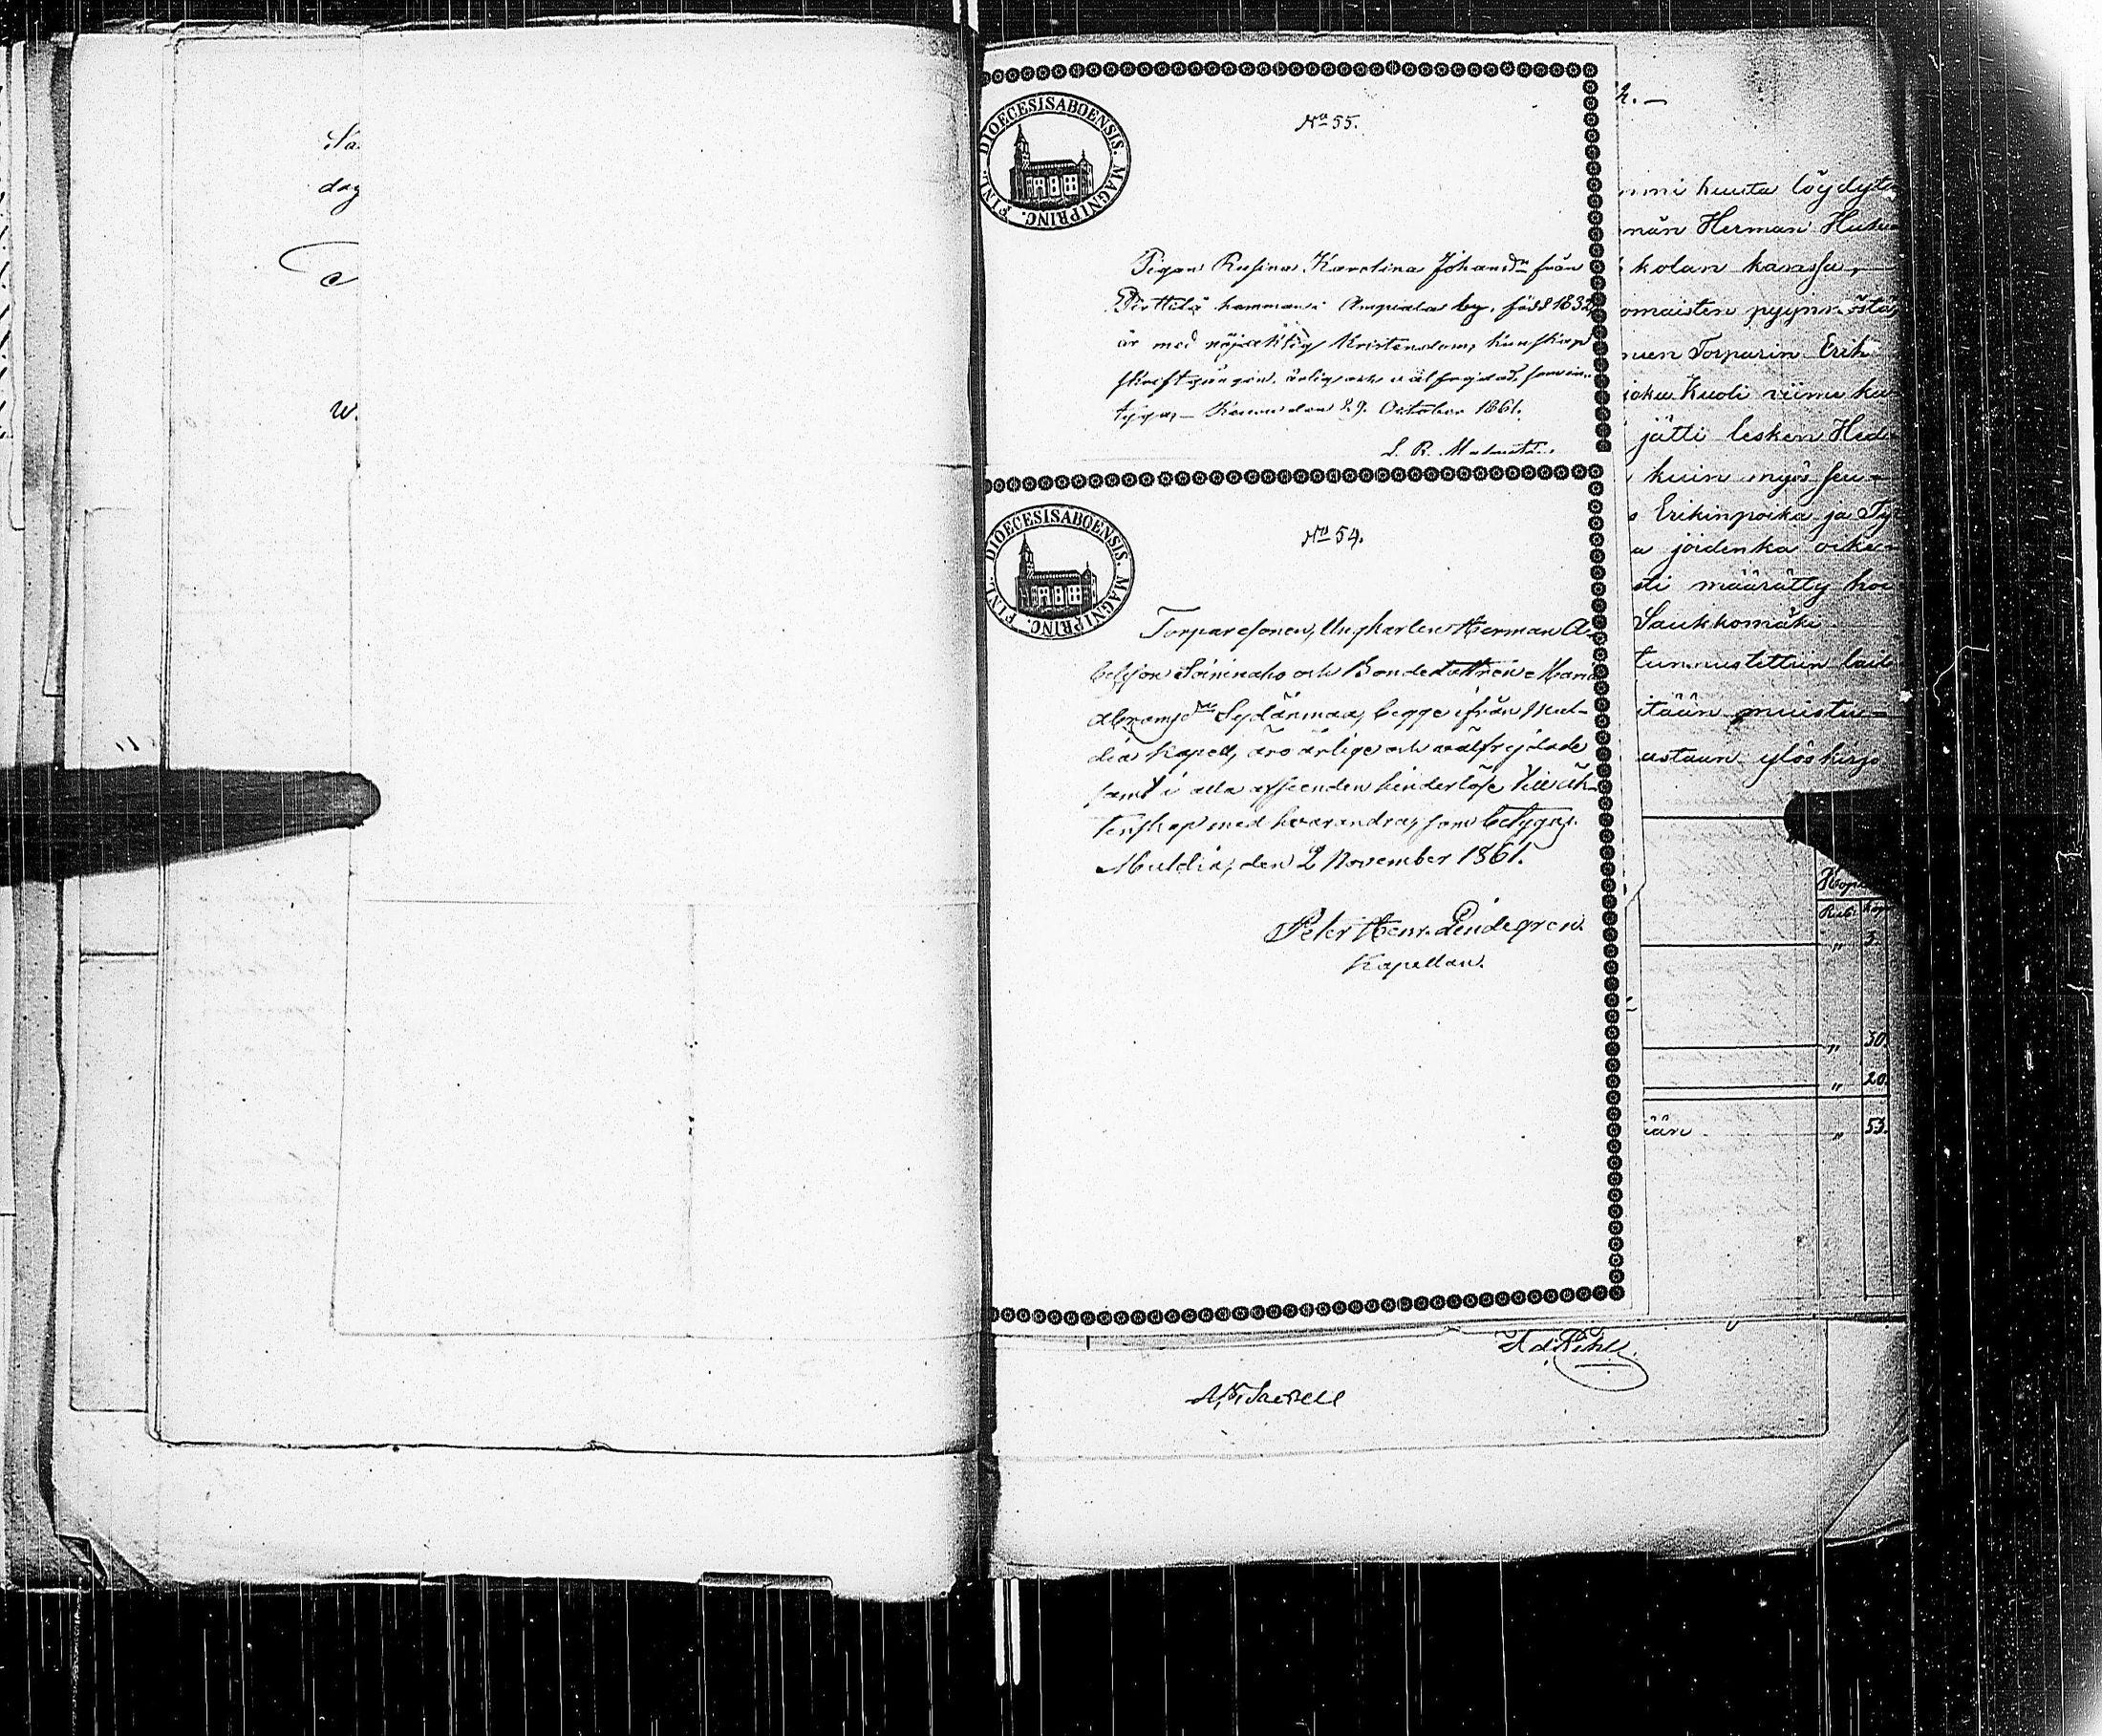 Sa
dag
c
w.
DIOECESIS ABOENSIS. MAGNI PRINC. FINL.
No 55.
Pigan Rusina Karolina Johansdr från
Pirttilä hemman i Ampiala by, född 1832,
är med nöjaktig Kristendoms kunskap
skriftgången, ärlig och välfrejdad, som in-
tygas. — den 29. October 1861.
DIOECESIS ABOENSIS. MAGNI PRINC. FINL.
No 54.
Torparesonen, Ungkarlen Herman A-
belsson Soininaho och Bondedottren Maria
Abramsdr Sydänmaa, begge ifrån Mul-
dia Kapell, äro ärlige och wälfrejdade
samt i alla afseenden hinderlöse till äk-
tenskap med hvarandra, som betygas.
Muldia, den 2 November 1861.
Peter Henr. Lindegren.
Kapellan.
h. —
huuta löydyte
nän Herman
kolan kanssa,
omaisten pyynnöstä
nuen Torparin Erik
joku Kuoli viime ku
jätti lesken Hed
kuin myös seu
s Erikinpoika ja Ty
a joidenka oike
sti määrätty ho
Saukkomäki
tunnustettiin laile
itään muistu
ustaan ylöskirjo
Rub. Kop
" 3.
" 30.
" 20.
ään " 53.